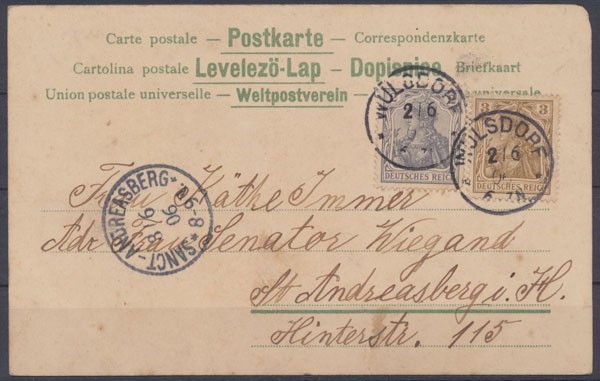 Carte postale — Postkarte — Correspondenzkarte
Cartolina postale Levelezö-Lap — Dopisnice Briefkaart
Union postale universelle — Weltpostverein — universale
WULSDORF
2 6
DEUTSCHES REICH
3 3
WULSDORF
2 6
DEUTSCHES REICH
SANCT-ANDREASBERG
Frau Käthe Immer
Adr. Frau Senator Wiegand
St Andreasberg i. H.
Hinterstr. 115